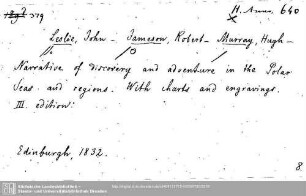 H. Amer. 640
379
Leslie, John - Jameson, Robert - Murray, Hugh -
Narrative of discovery and adventure in the Polar
Seas and regions. With charts and engravings.
III. edition:
Edinburgh, 1832.
8.